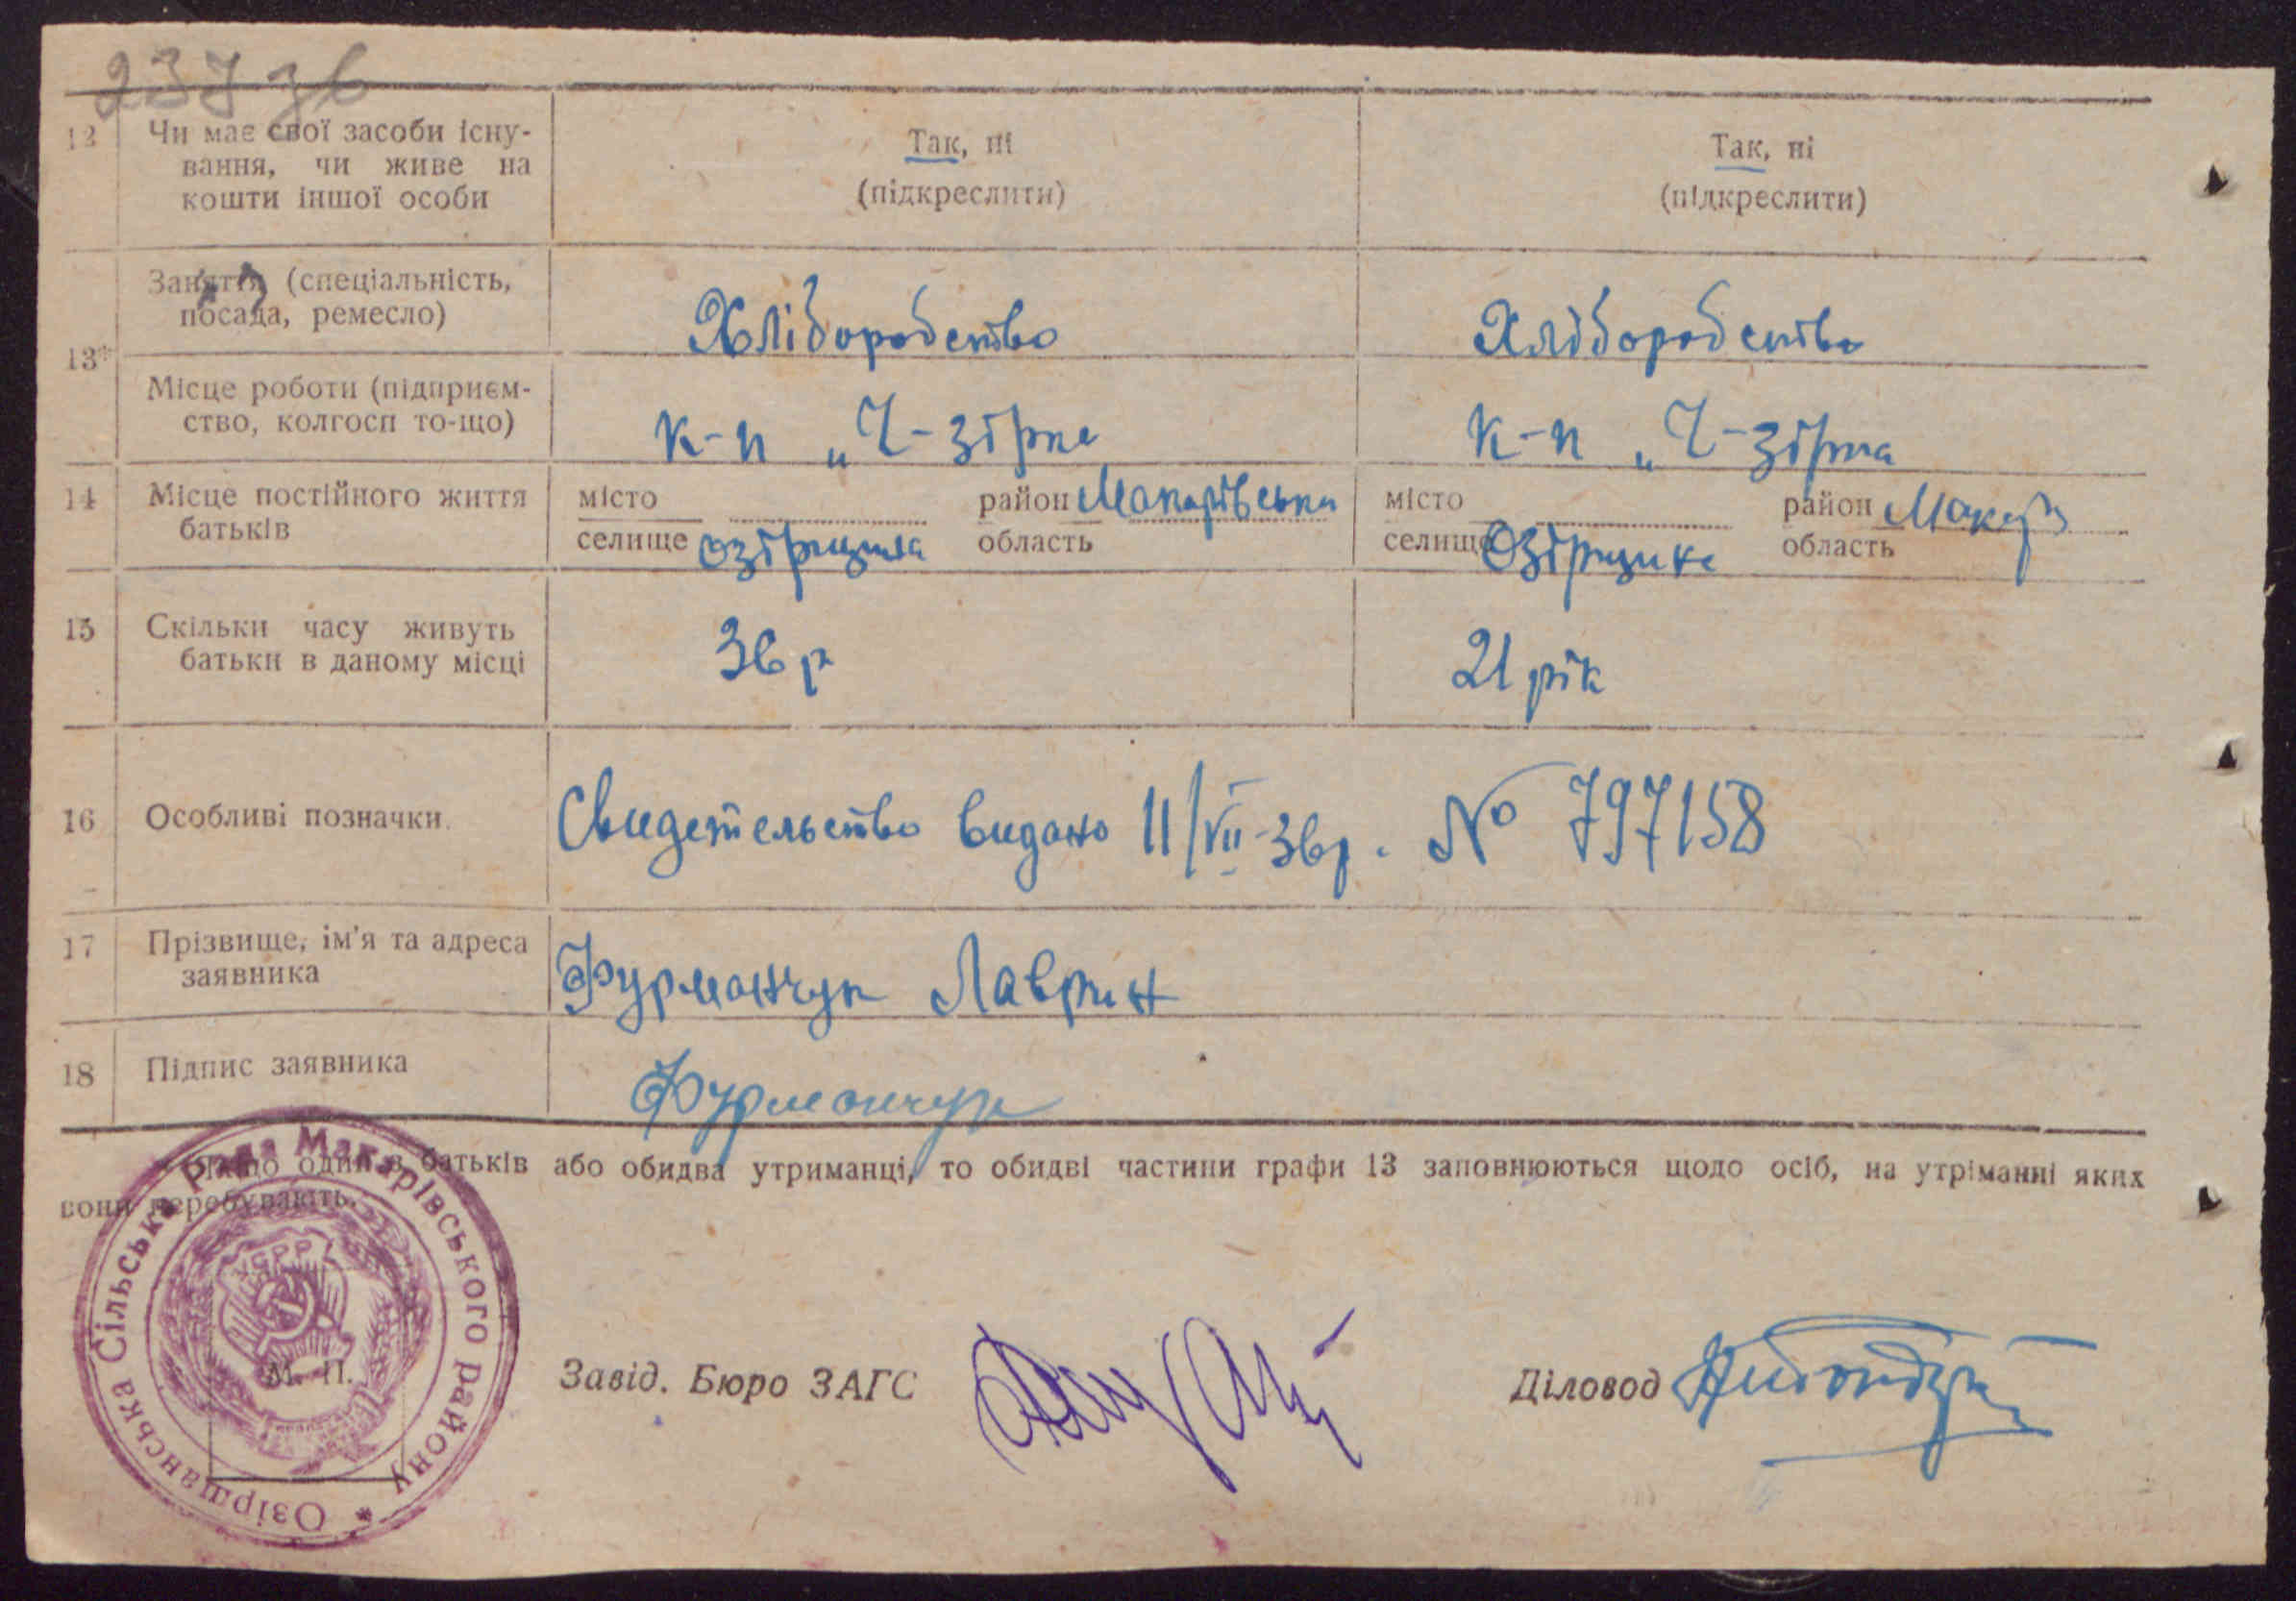 237 зв
12 Чи має свої засоби існу-
вання, чи живе на
кошти іншої особи
Так, ні
(підкреслити)
Так, ні
(підкреслити)
13*
Заняття (спеціальність,
посада, ремесло)
Хліборобство
Хліборобство
Місце роботи (підприєм-
ство, колгосп то-що)
к-п „Ч-зірка
к-п „Ч-зірка
14 Місце постійного життя
батьків
місто
селище Озірщина
район Макарівськи
область
місто
селище Озірщина
район Макар
область
15 Скільки часу живуть
батьки в даному місці
36 р
21 рік
16 Особливі позначки.
Свидетельство видано 11/VII-36р. № 797158
17 Прізвище, ім'я та адреса
заявника
Фурманчук Лаврин
18 Підпис заявника
Фурманчук
* Якщо один з батьків або обидва утриманці, то обидві частини графи 13 заповнюються щодо осіб, на утріманні яких
вони перебувають.
Озірщанська Сільська Рада Макарівського району *
УСРР
М. П.
Завід. Бюро ЗАГС
Діловод